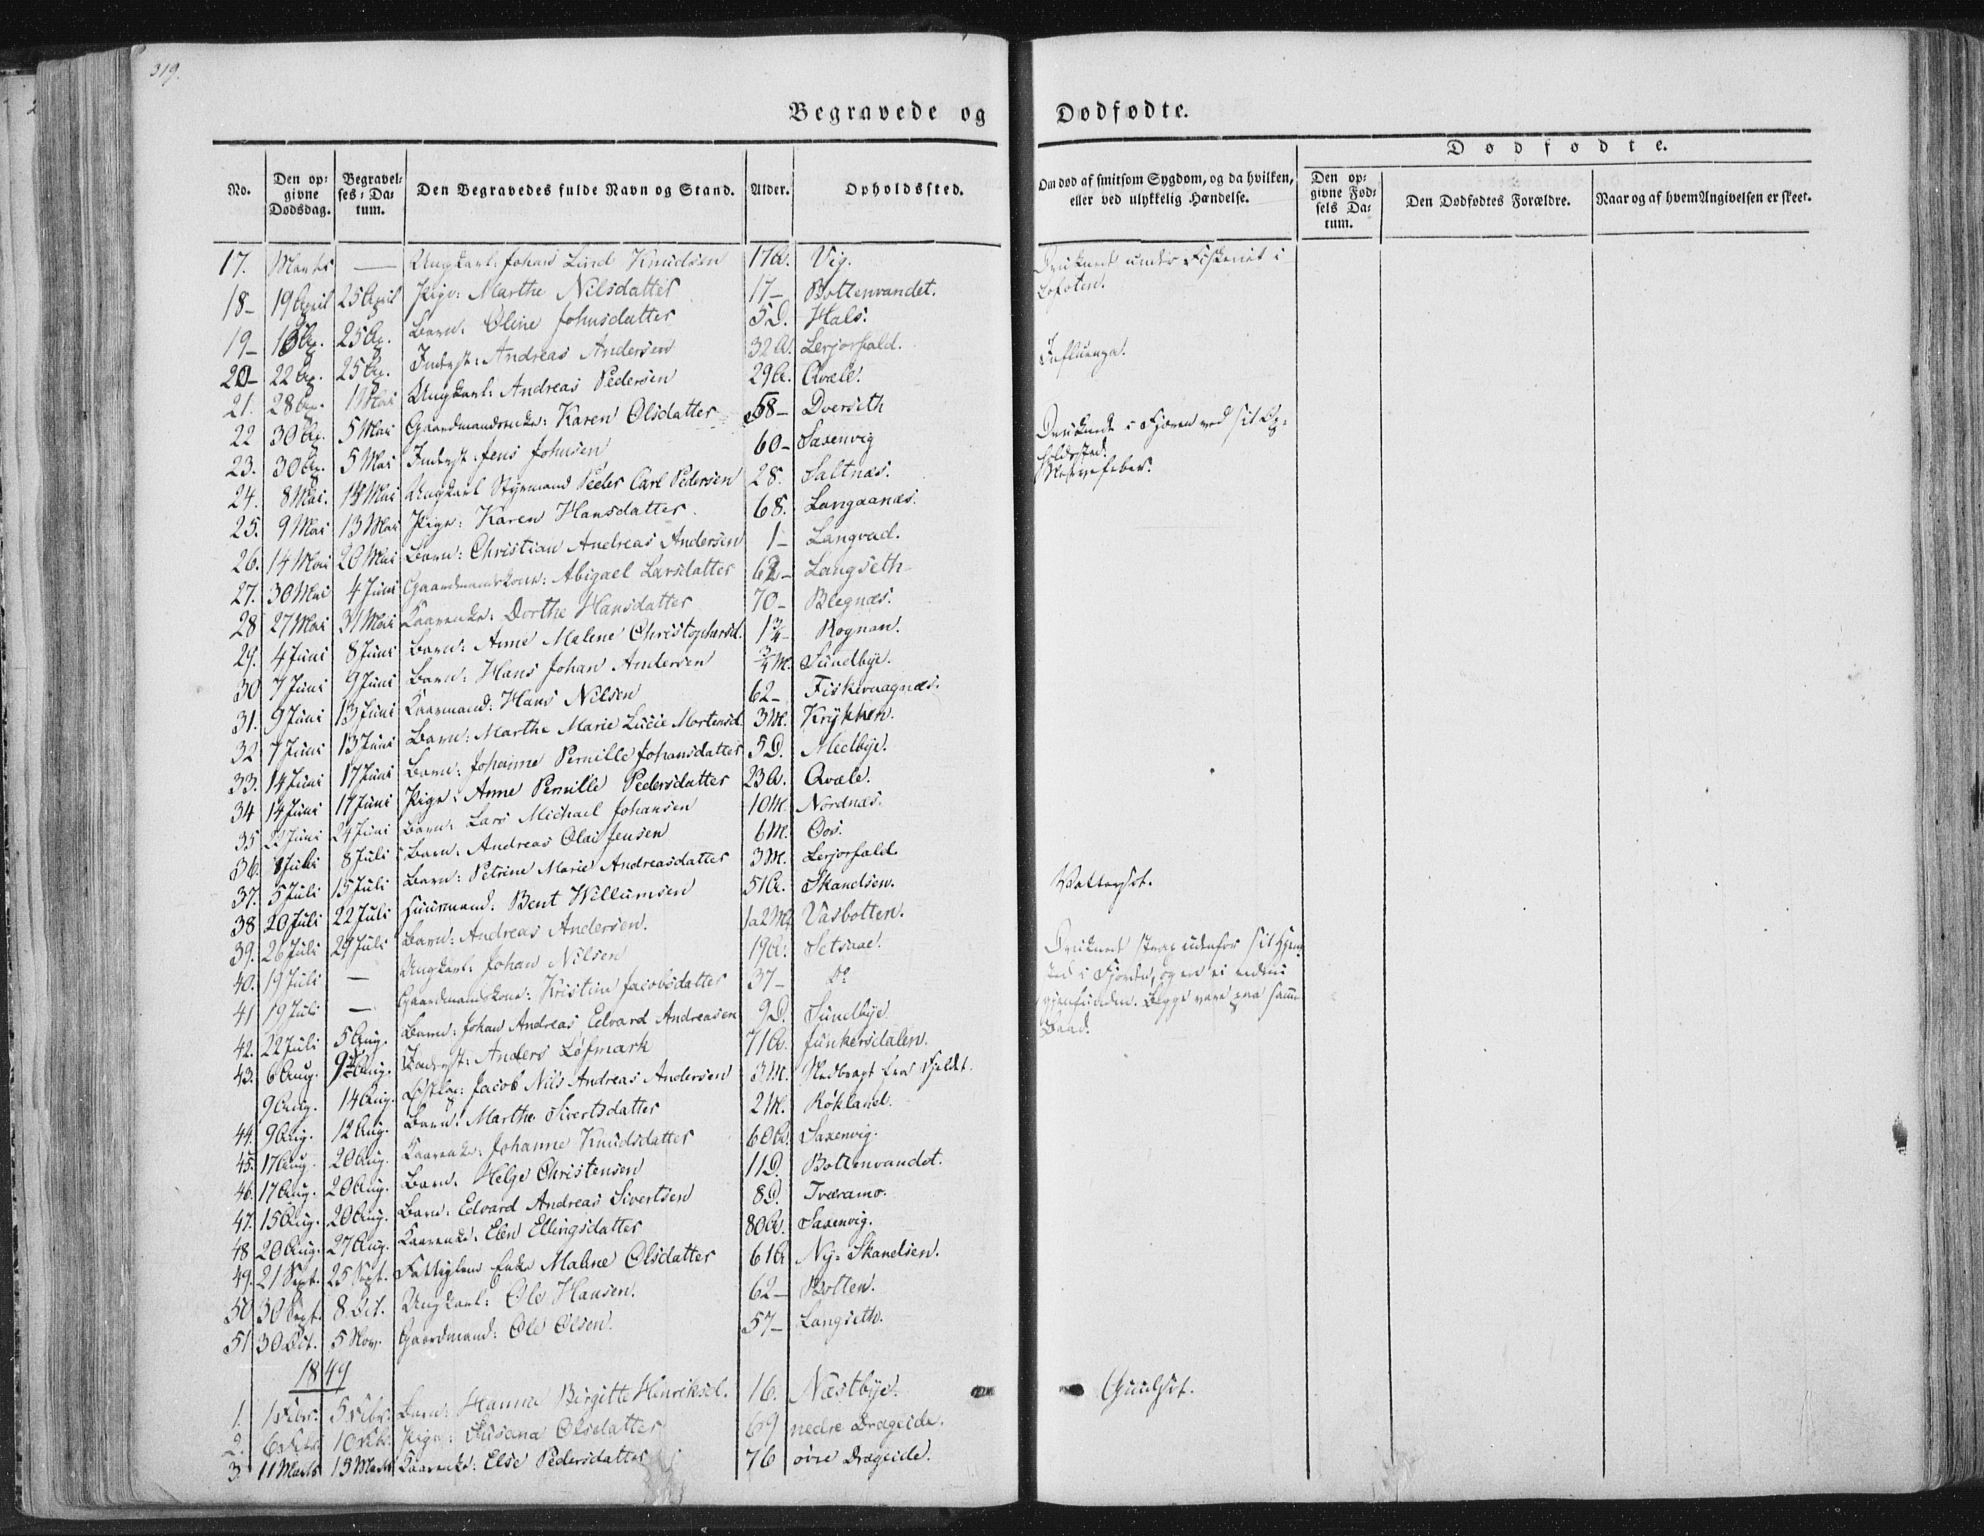 319.
Begravede og Dødfødte.
No. Den opgivne Dødsdag. Begravelses-Datum. Den Begravedes fulde Navn og Stand. Alder. Opholdssted. Om død af smitsom Sygdom, og da hvilken, eller ved ulykkelig Hændelse. Dødfødte. Den opgivne Fødsels Datum. Den Dødfødtes Forældre. Naar og af hvem Angivelsen er skeet.
17. Marts — Ungkarl: Johan Lind Knudsen 17 A. Vig. Druknet under Fiskeriet i Lofoten.
18- 19 April 25 April Pige: Marthe Nilsdatter 17- Bottenvandet.
19- 16 Ap. 25 Ap. Barn: Oline Johnsdatter 5 D. Hals.
20- 22 Ap. 25 Ap. Inderst: Andreas Andersen 32 A. Lerjorfald. Influenza.
21. 28 Ap. 1 Mai Ungkarl: Andreas Pedersen 29 A. Qvæle.
22 30 Ap. 5 Mai Gaardmandsenke: Karen Olsdatter 58- Dverseth Druknet i Fjæren ved sit Opholdssted.
23. 30 Ap. 5 Mai Inderst: Jens Johnsen 60- Saxenvig
24. 8 Mai. 14 Mai Ungkarl Styrmand Peder Carl Pedersen 28. Saltnæs. Nervefeber.
25. 9 Mai 13 Mai Pige: Karen Hansdatter. 68. Langaanæs.
26. 14 Mai 20 Mai Barn: Christian Andreas Andersen 1- Langvad.
27. 30 Mai 4 Juni Gaardmandskone: Abigael Larsdatter 62- Langseth
28 27 Mai 31 Mai Kaarenke: Dorthe Hansdatter 70- Blegnæs.
29. 4 Juni 8 Juni Barn: Anne Malene Christophersd. 1 3/4- Rognan.
30 7 Juni 9 Juni Barn: Hans Johan Andersen 3/4 M. Sundbye.
31. 9 Juni 13 Juni Kaarmand: Hans Nilsen 62- Fiskevaagnæs.
32 7 Juni 13 Juni Barn: Marthe Marie Lucie Mortensd. 3 M. Krykken.
33. 14 Juni 17 Juni Barn: Johanne Pernille Johansdatter 5 D. Medbye.
34 14 Juni 17 Juni Pige: Anne Pernille Pedersdatter 23 A. Qvæle.
35 22 Juni 24 Juni Barn: Lars Michael Johansen 10 M. Nordnæs.
36. 1 Juli 8 Juli Barn: Andreas Olai Jensen 6 M. Oos.
37. 5 Juli 15 Juli Barn: Petrine Marie Andreasdatter 3 M. Lerjorfald.
38 20 Juli 22 Juli Huusmand: Bent Willumsen 51 A. Skandsen. Vattersot.
39. 26 Juli 29 Juli Barn: Andreas Andersen. 1 a 2 M. Vasbotten.
40. 19 Juli — Ungkarl: Johan Nilsen 19 A. Setsaae. Druknet strax udenfor sit Hjemsted i Fjorden, og en ei endnu gjenfunden. Begge vare paa samme Baad.
41 19 Juli — Gaardmandskone: Kristine Jacobsdatter 37- Do
42. 22 Juli 5 Aug. Barn: Johan Andreas Edvard Andreasen 9 D. Sundbye.
43. 6 Aug. 9 Aug. Inderst: Anders Løfmark 71 A. Junkersdalen.
9 Aug. 14 Aug. Jacob Nils Andreas Andersen 3 M. Nedbragt fra Fjeldet.
44. 9 Aug. 12 Aug. Barn: Marthe Sivertsdatter 2 M. Røkland.
45. 17 Aug. 20 Aug. Kaarenke: Johanne Knudsdatter 60 A. Saxenvig.
46. 17 Aug. 20 Aug. Barn. Helge Christensen 11 D. Bottenvandet.
47. 15 Aug. 20 Aug. Barn: Edvard Andreas Sivertsen 8 D. Tværamo.
48 20 Aug. 27 Aug. Kaarenke: Elen Ellingsdatter 80 A. Saxenvig.
49. 21 Sept. 25 Sept. Fattiglem Enke Maline Olsdatter 61 A Ny-Skandsen.
50 30 Sept. 8 Oct. Ungkarl: Ole Hansen. 62- Botten.
51 30 Oct. 5 Nov. Gaardmand: Ole Olsen. 57- Langseth.
1849
1. 1 Febr. 5 Febr. Barn: Hanna Birgitte Henriksd. 16. Næstbye. Guulsot.
2. 6 Febr 10 Feb. Pige: Susana Olsdatter 69 nedre Drageide.
3. 11 Marts 15 Marts Kaarenke: Else Pedersdatter 76 øvre Drageide.